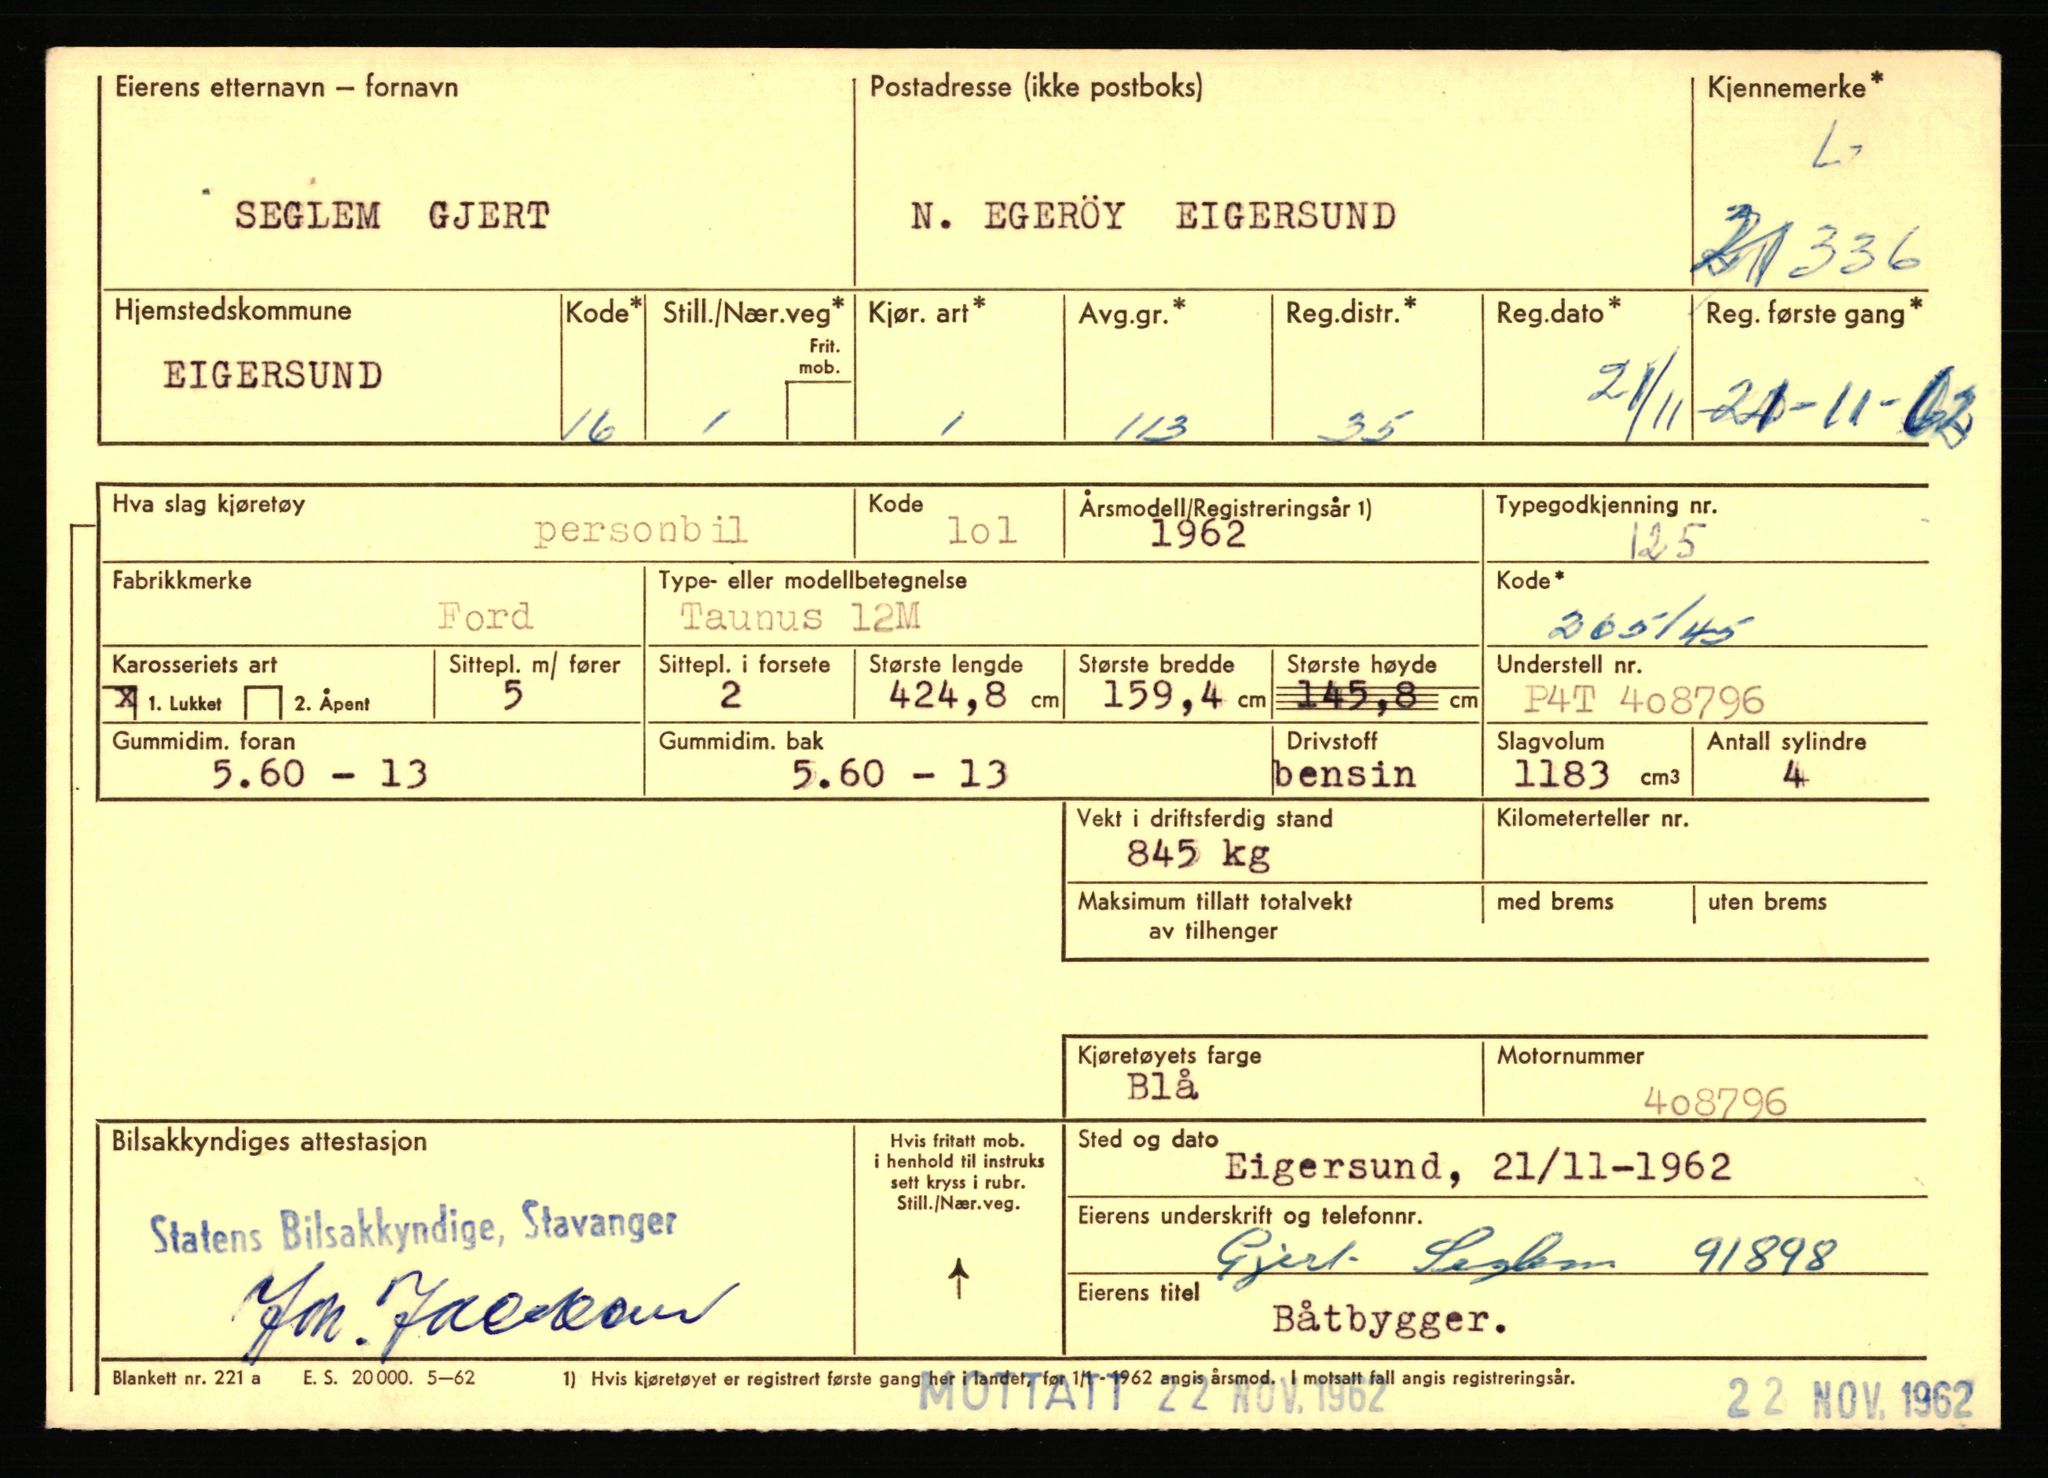 Eierens etternavn – fornavn
Postadresse (ikke postboks)
Kjennemerke*
L-
SEGLEM GJERT
N. EGERÖY EIGERSUND
336
Hjemstedskommune
Kode*
Still./Nær.veg*
Frit. mob.
Kjør. art*
Avg.gr.*
Reg.distr.*
Reg.dato*
Reg. første gang*
EIGERSUND
16
1
1
113
35
21/11
21-11-62
Hva slag kjøretøy
personbil
Kode
lol
Årsmodell/Registreringsår 1)
1962
Typegodkjenning nr.
125
Fabrikkmerke
Ford
Type- eller modellbetegnelse
Taunus 12M
Kode*
265/45
Karosseriets art
X 1. Lukket 2. Åpent
Sittepl. m/ fører
5
Sittepl. i forsete
2
Største lengde
424,8 cm
Største bredde
159,4 cm
Største høyde
145,8 cm
Understell nr.
P4T 4o8796
Gummidim. foran
5.60 – 13
Gummidim. bak
5.60 – 13
Drivstoff
bensin
Slagvolum
1183 cm3
Antall sylindre
4
Vekt i driftsferdig stand
845 kg
Kilometerteller nr.
Maksimum tillatt totalvekt
av tilhenger
med brems
uten brems
Kjøretøyets farge
Blå
Motornummer
4o8796
Bilsakkyndiges attestasjon
Statens Bilsakkyndige, Stavanger
Hvis fritatt mob.
i henhold til instruks
sett kryss i rubr.
Still./Nær.veg.
Sted og dato
Eigersund, 21/11-1962
Eierens underskrift og telefonnr.
Gjert Seglem 91898
Eierens titel
Båtbygger.
Blankett nr. 221 a E. S. 20 000. 5–62
1) Hvis kjøretøyet er registrert første gang her i landet, før 1/1 - 1962 angis årsmod. I motsatt fall angis registreringsår.
MOTTATT 22 NOV. 1962
22 NOV. 1962